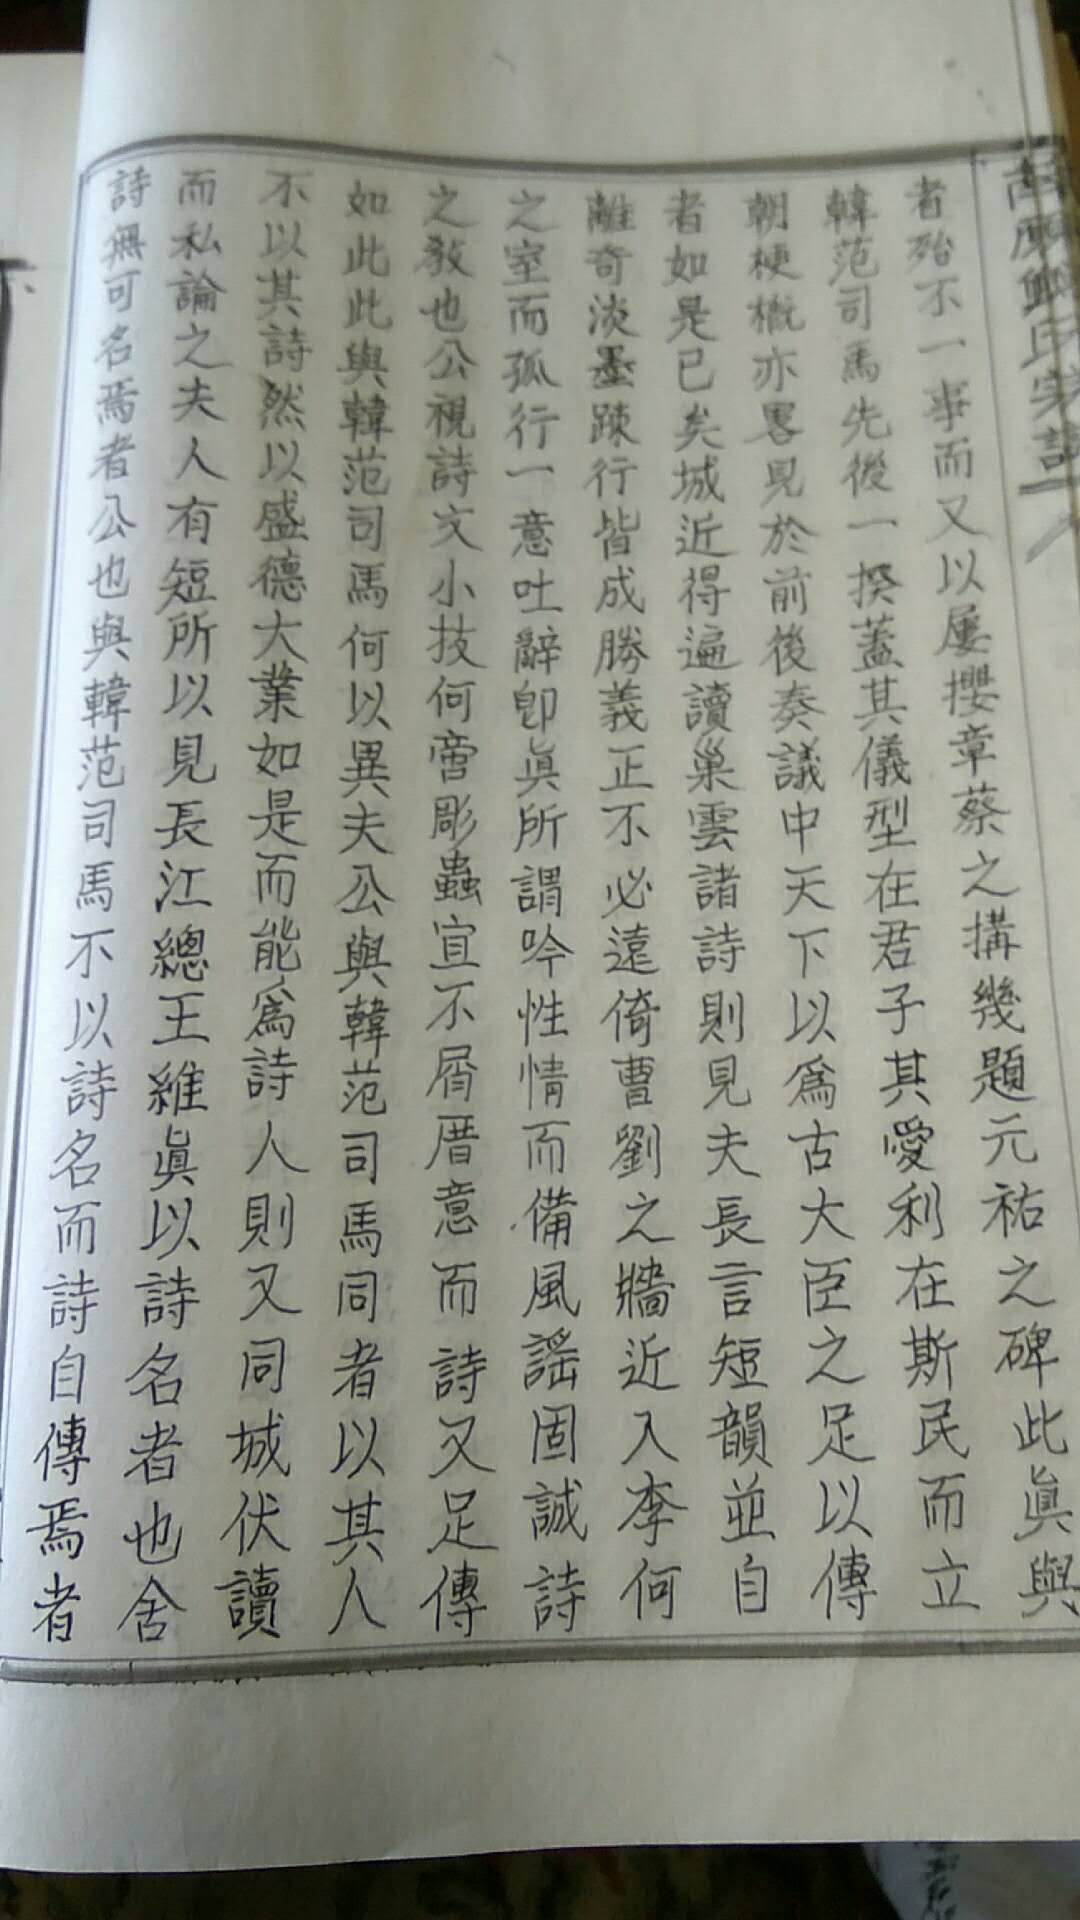 者殆不一事而又以屢攖章蔡之搆幾題元祐之碑此眞與
韓范司馬先後一揆蓋其儀型在君子其愛利在斯民而立
朝梗概亦畧見於前後奏議中天下以爲古大臣之足以傳
者如是已矣城近得遍讀巢雲諸詩則見夫長言短韻並自
離奇淡墨踈行皆成勝義正不必遠倚曹劉之牆近入李何
之室而孤行一意吐辭卽眞所謂吟性情而備風謠固誠詩
之教也公視詩文小技何啻彫蟲宜不屑厝意而詩又足傳
如此此與韓范司馬何以異夫公與韓范司馬同者以其人
不以其詩然以盛德大業如是而能爲詩人則又同城伏讀
而私論之夫人有短所以見長江總王維眞以詩名者也舍
詩無可名焉者公也與韓范司馬不以詩名而詩自傳焉者